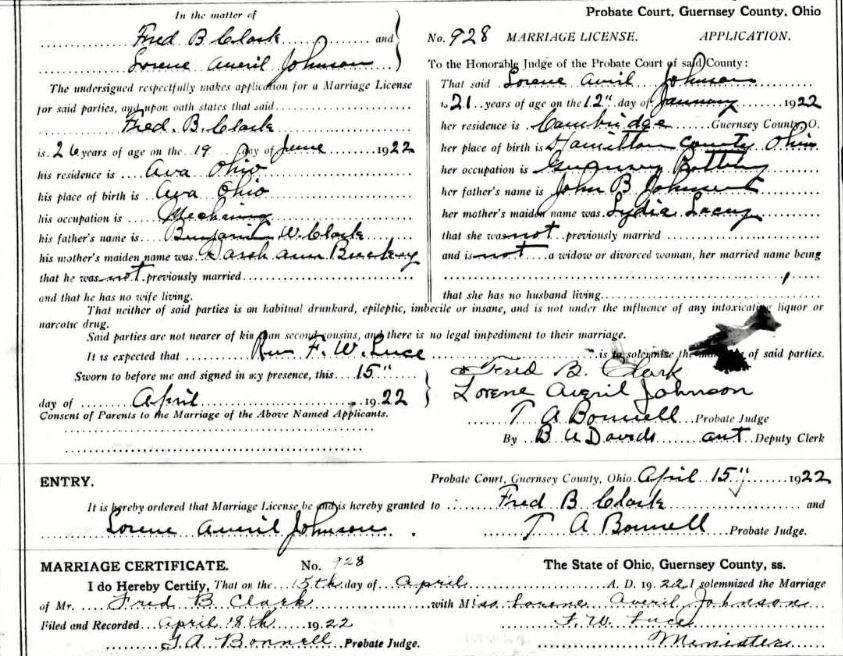 In the matter of
Fred B Clark and
Lorene Averil Johnson
The undersigned respectfully makes application for a Marriage License
for said parties, and upon oath states that said
Fred. B. Clark
is 26 years of age on the 19 day of June 1922
his residence is Ava Ohio
his place of birth is Ava Ohio
his occupation is Mechanic
his father's name is Benjamin W. Clark
his mother's maiden name was Sarah Ann
that he was not previously married
and that he has no wife living.
Probate Court, Guernsey County, Ohio
No. 928 MARRIAGE LICENSE. APPLICATION.
To the Honorable Judge of the Probate Court of said County:
That said Lorene Avril Johnson
is 21 years of age on the 12" day of January 1922
her residence is Cambridge Guernsey County, O.
her place of birth is Hamilton County Ohio
her occupation is Guernsey
her father's name is John B Johnson
her mother's maiden name was Lydia Lacey
that she was not previously married
and is not a widow or divorced woman, her married name being
that she has no husband living
That neither of said parties is an habitual drunkard, epileptic, imbecile or insane, and is not under the influence of any intoxicating liquor or
narcotic drug.
Said parties are not nearer of kin than second cousins, and there is no legal impediment to their marriage.
It is expected that Rev F. W. Luce is to solemnize the of said parties.
Sworn to before me and signed in my presence, this 15"
day of April 1922
Fred B. Clark
Lorene Averil Johnson
Consent of Parents to the Marriage of the Above Named Applicants.
T A Bonnell Probate Judge
By B A Davids Deputy Clerk
ENTRY. Probate Court, Guernsey County, Ohio April 15" 1922
It is hereby ordered that Marriage License be and is hereby granted to Fred B Clark and
Lorene Averil Johnson. T A Bonnell Probate Judge.
MARRIAGE CERTIFICATE. No. 928 The State of Ohio, Guernsey County, ss.
I do Hereby Certify, That on the 15th day of April A. D. 1922 I solemnized the Marriage
of Mr. Fred B Clark with Miss Lorene Averil Johnson
Filed and Recorded April 18th 1922 F. W. Luce
T. A. Bonnell Probate Judge. Minister